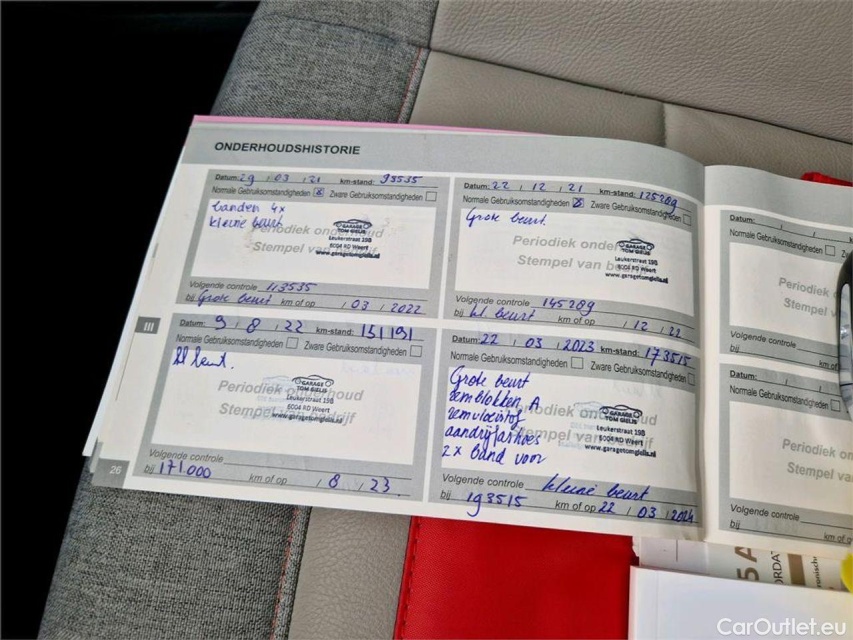 ONDERHOUDSHISTORIE
Datum: 29 / 03 / 21 km-stand: 93535
Normale Gebruiksomstandigheden ☒ Zware Gebruiksomstandigheden ☐
banden 4x
kleine beurt
Periodiek onderhoud
Stempel van
GARAGE
TOM GIELIS
Leukerstraat 19B
6004 RD Weert
www.garagetomgielis.nl
Volgende controle 113535
bij Grote beurt km of op / 03 / 2022
Datum: 22 / 12 / 21 km-stand: 125289
Normale Gebruiksomstandigheden ☒ Zware Gebruiksomstandigheden ☐
Grote beurt.
Periodiek onder
Stempel van be
GARAGE
TOM GIELIS
Leukerstraat 19B
6004 RD Weert
www.garagetomgielis.nl
Volgende controle 145289
bij kl. beurt km of op / 12 / 22
III
Datum: 9 / 8 / 22 km-stand: 151191
Normale Gebruiksomstandigheden ☐ Zware Gebruiksomstandigheden ☐
kl beurt.
Periodiek onderhoud
Stempel van bedrijf
GARAGE
TOM GIELIS
Leukerstraat 19B
6004 RD Weert
Volgende controle
bij 171.000 km of op / 8 / 23
26
Datum: 22 / 03 / 2023 km-stand: 173515
Normale Gebruiksomstandigheden ☐ Zware Gebruiksomstandigheden ☐
Grote beurt
remblokken A
remvloeistof
aandrijfashoes
2x band voor
Periodiek onderhoud
Stempel van bedrijf
GARAGE
TOM GIELIS
Leukerstraat 19B
6004 RD Weert
www.garagetomgielis.nl
Volgende controle kleine beurt
bij 193515 km of op 22 / 03 / 2024
Datum: / /
Normale Gebruiksomstandigheden ☐ Z
Periodiek
Stempel v
Volgende controle
bij km of
Datum: / /
Normale Gebruiksomstandigheden ☐
Periodiek
Stempel va
Volgende controle
bij km of o
5A
CarOutlet.eu